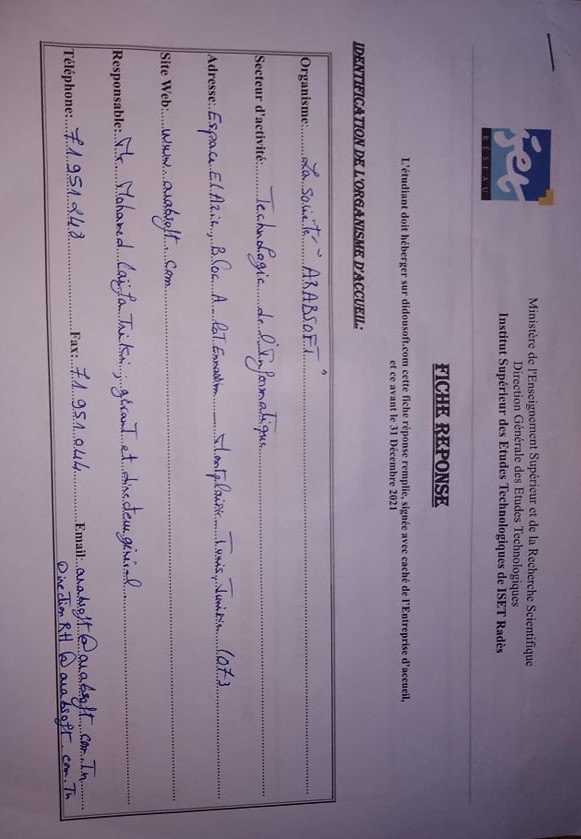 iset
RÉSEAU
Ministère de l'Enseignement Supérieur et de la Recherche Scientifique
Direction Générale des Etudes Technologiques
Institut Supérieur des Etudes Technologiques de ISET Radès
FICHE REPONSE
L'étudiant doit héberger sur didousoft.com cette fiche réponse remplie, signée avec caché de l'Entreprise d'accueil,
et ce avant le 31 Décembre 2021
IDENTIFICATION DE L'ORGANISME D'ACCUEIL:
Organisme: La Société "ARABSOFT"
Secteur d'activité: Technologie de l'informatique
Adresse: Espace El Aziz, Bloc A Montplaisir Tunis, Tunisie
Site Web: www.arabsoft.com
Responsable: Mr Mohamed Triki, gérant et directeur général
Téléphone: 71 951 243 Fax: 71 951 044 Email: arabsoft@arabsoft.com.Tn
DirectionRH@arabsoft.com.Tn